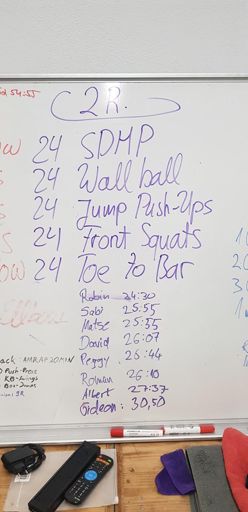 54:55
2R.
24 SDMP
24 Wall ball
24 Jump Push-Ups
24 Front Squats
24 Toe to Bar
Robin 24:30
Sabi 25:55
Matse 25:55
David 26:07
Peggy 26:44
Roman 26:10
Albert 27:37
Gideon: 30,50
AMRAP 20MIN
Push-Press
KB-Swings
Box-Jumps